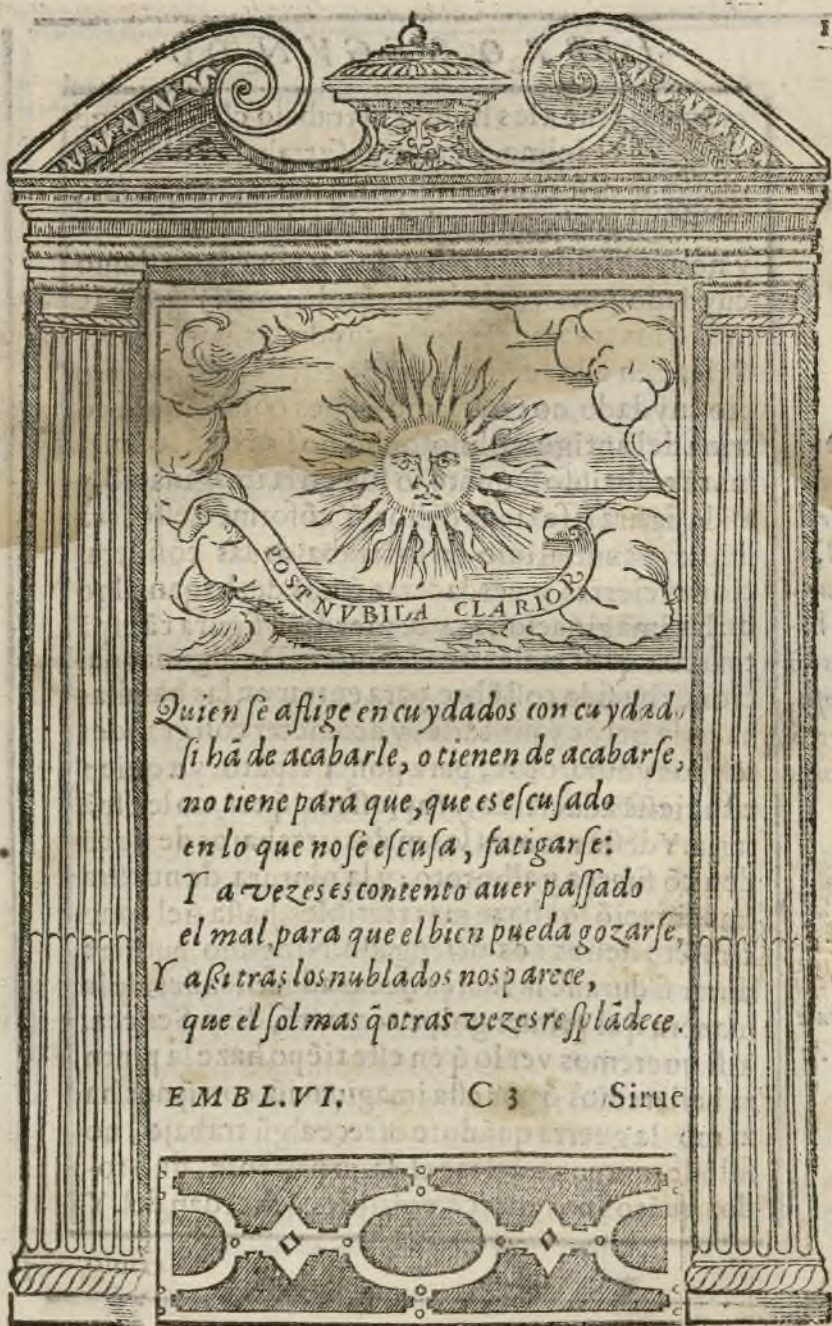 POST NVBILA CLARIOR
Quien ſe aflige en cuydados con cuydad
ſi hã de acabarle, o tienen de acabarſe,
no tiene para que, que es eſcuſado
en lo que no ſe eſcuſa, fatigarſe:
Y a vezes es contento auer paſſado
el mal, para que el bien pueda gozarſe,
Y aſsi tras los nublados nos parece,
que el ſol mas q̃ otras vezes reſplãdece.
EMBL. VI. C 3 Sirue